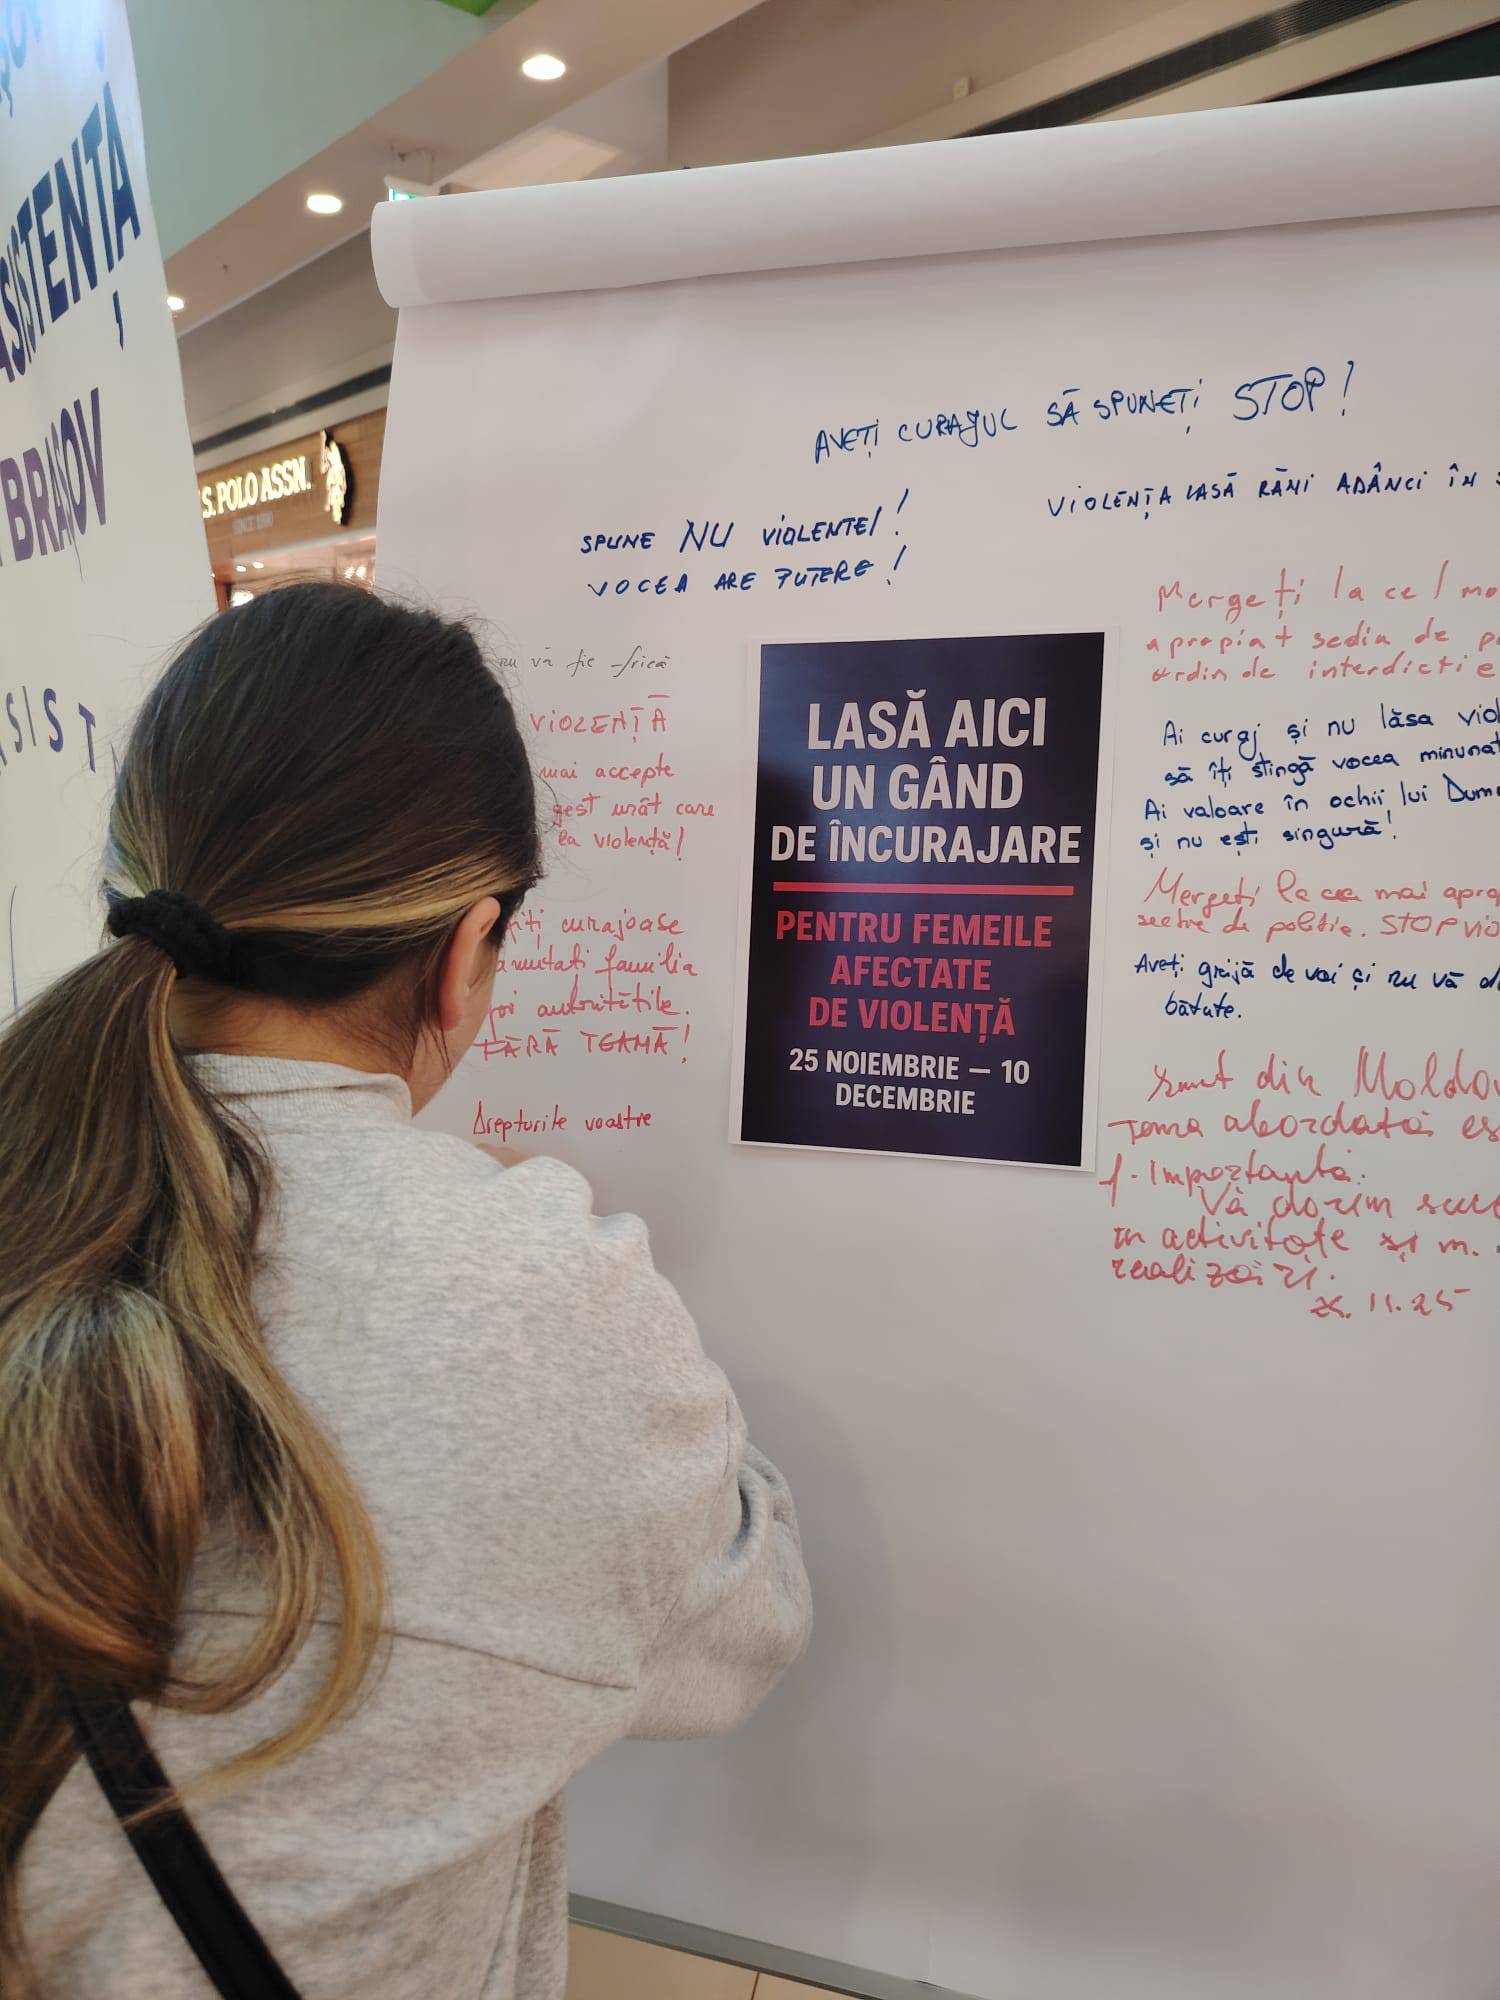 ASISTENȚĂ
BRAȘOV
SIST
U.S. POLO ASSN.
SINCE 1890
AVEȚI CURAJUL SĂ SPUNEȚI STOP!
VIOLENȚA LASĂ RĂNI ADÂNCI ÎN
SPUNE NU VIOLENTEI!
VOCEA ARE PUTERE!
nu vă fie frică
VIOLENȚĂ
mai accepte
gest urât care
violență!
curajoase
familia
autoritățile.
FĂRĂ TEAMĂ!
Drepturile voastre
LASĂ AICI
UN GÂND
DE ÎNCURAJARE
PENTRU FEMEILE
AFECTATE
DE VIOLENȚĂ
25 NOIEMBRIE — 10
DECEMBRIE
Mergeți la cel
apropiat sediu de
ordin de interdictie
Ai curaj și nu lăsa
să îți stingă vocea
Ai valoare în ochii lui
și nu ești singură!
Mergeți la cea mai
secție de poliție. STOP
Aveți grijă de voi și nu vă
bătute.
Sunt din
Tema abordată
f. importantă.
Vă dorim
în activitate și m.
realizări.
11.25